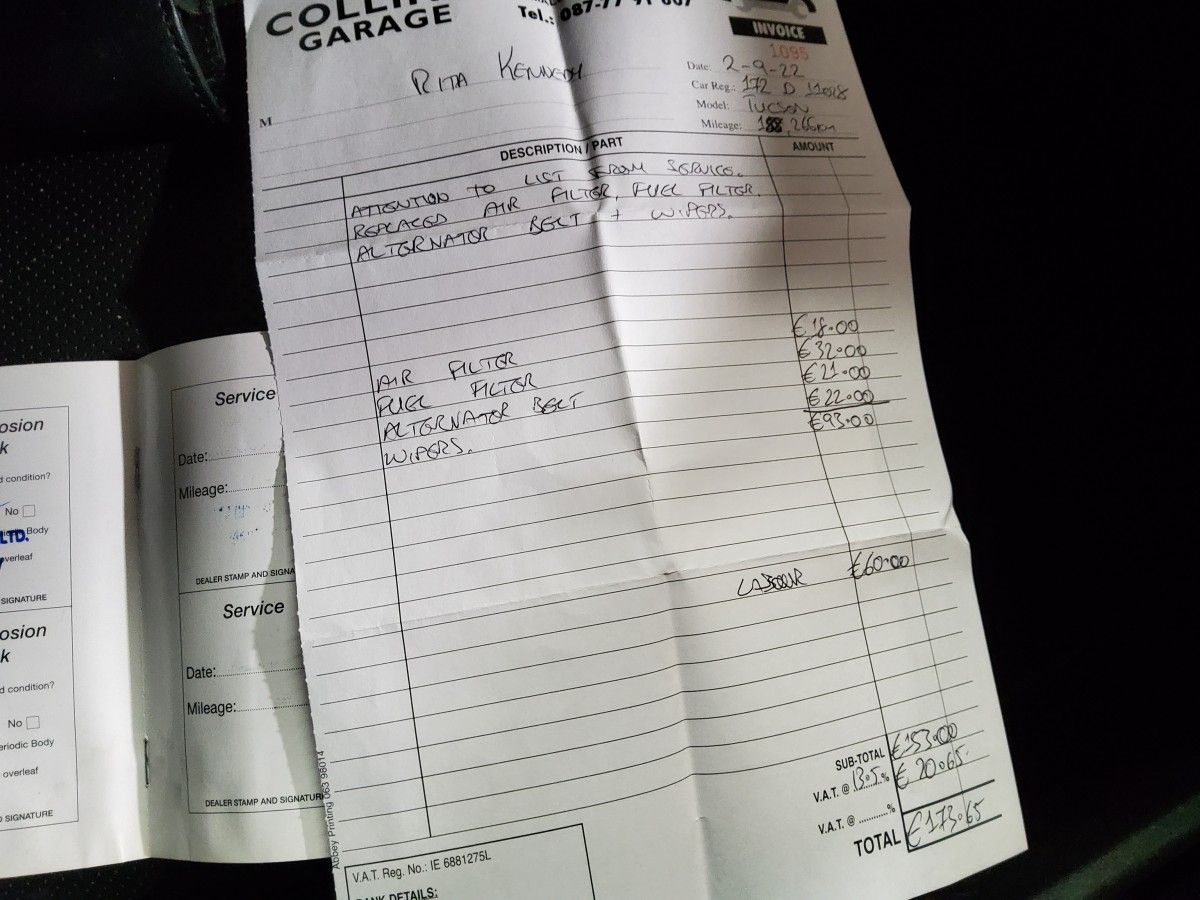 GARAGE
Tel.: 087-77
INVOICE
1095
RITA KENNEDY
Date: 2-9-22
Car Reg.: 172 D
Model: TUCSON
M
Mileage:
DESCRIPTION / PART
AMOUNT
ATTENTION TO LIST FROM SERVICE.
REPLACED AIR FILTER, FUEL FILTER.
ALTERNATOR BELT + WIPERS.
AIR FILTER €18.00
FUEL FILTER €32.00
ALTERNATOR BELT €21.00
WIPERS. €22.00
€93.00
LABOUR €60.00
SUB-TOTAL €153.00
V.A.T. @ 13.5.% €20.65.
V.A.T. @ ...........%
TOTAL €173.65
Abbey Printing 063 98014
V.A.T. Reg. No.: IE 6881275L
BANK DETAILS:
osion
k
d condition?
No
Body
LTD.
verleaf
SIGNATURE
osion
k
d condition?
No
eriodic Body
overleaf
SIGNATURE
Service
Date:
Mileage:
DEALER STAMP AND SIGNA
Service
Date:
Mileage:
DEALER STAMP AND SIGNATUR